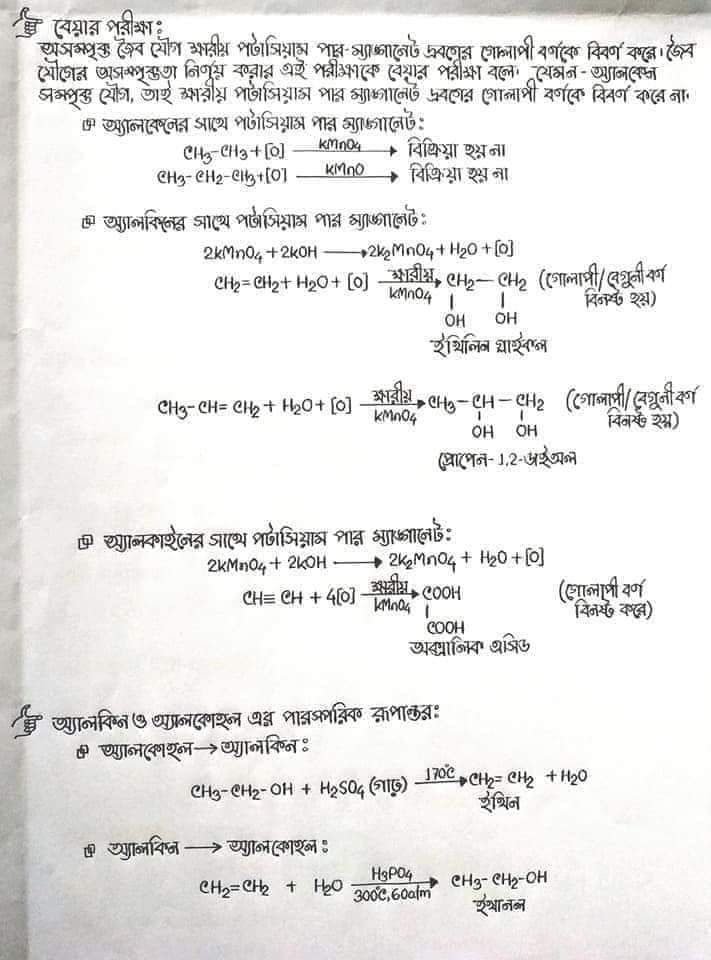 বেয়ার পরীক্ষা:
অসম্পৃক্ত জৈব যৌগ ক্ষারীয় পটাসিয়াম পার-ম্যাঙ্গানেট দ্রবণের গোলাপী বর্ণকে বিবর্ণ করে। জৈব
যৌগের অসম্পৃক্ততা নির্ণয় করার এই পরীক্ষাকে বেয়ার পরীক্ষা বলে। যেমন - অ্যালকেন
সম্পৃক্ত যৌগ, তাই ক্ষারীয় পটাসিয়াম পার ম্যাঙ্গানেট দ্রবণের গোলাপী বর্ণকে বিবর্ণ করে না।
অ্যালকেনের সাথে পটাসিয়াম পার ম্যাঙ্গানেট:
CH3-CH3+[O] —KMnO4→ বিক্রিয়া হয় না
CH3-CH2-CH3+[O] —KMnO→ বিক্রিয়া হয় না
অ্যালকিনের সাথে পটাসিয়াম পার ম্যাঙ্গানেট:
2KMnO4+2KOH ⟶ 2K2MnO4+H2O+[O]
CH2=CH2+H2O+[O] —ক্ষারীয় KMnO4→ CH2—CH2 (গোলাপী/বেগুনী বর্ণ
বিনষ্ট হয়)
OH OH
ইথিলিন গ্লাইকল
CH3-CH=CH2+H2O+[O] —ক্ষারীয় KMnO4→ CH3-CH-CH2 (গোলাপী/বেগুনী বর্ণ
বিনষ্ট হয়)
OH OH
প্রোপেন-1,2-ডাইঅল
অ্যালকাইনের সাথে পটাসিয়াম পার ম্যাঙ্গানেট:
2KMnO4+2KOH ⟶ 2K2MnO4+H2O+[O]
CH≡CH+4[O] —ক্ষারীয় KMnO4→ COOH (গোলাপী বর্ণ
বিনষ্ট করে)
COOH
অক্সালিক এসিড
অ্যালকিন ও অ্যালকোহল এর পারস্পরিক রূপান্তর:
অ্যালকোহল → অ্যালকিন:
CH3-CH2-OH + H2SO4 (গাঢ়) —170°C→ CH2=CH2 + H2O
ইথিন
অ্যালকিন ⟶ অ্যালকোহল:
CH2=CH2 + H2O —H3PO4 300°C, 60atm→ CH3-CH2-OH
ইথানল